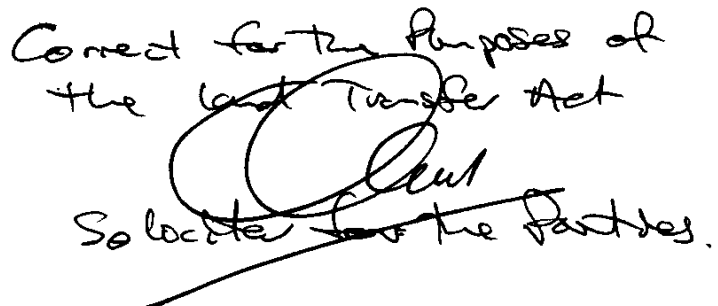 Correct for the Purposes of
the Land Transfer Act
Solociter for the Parties.